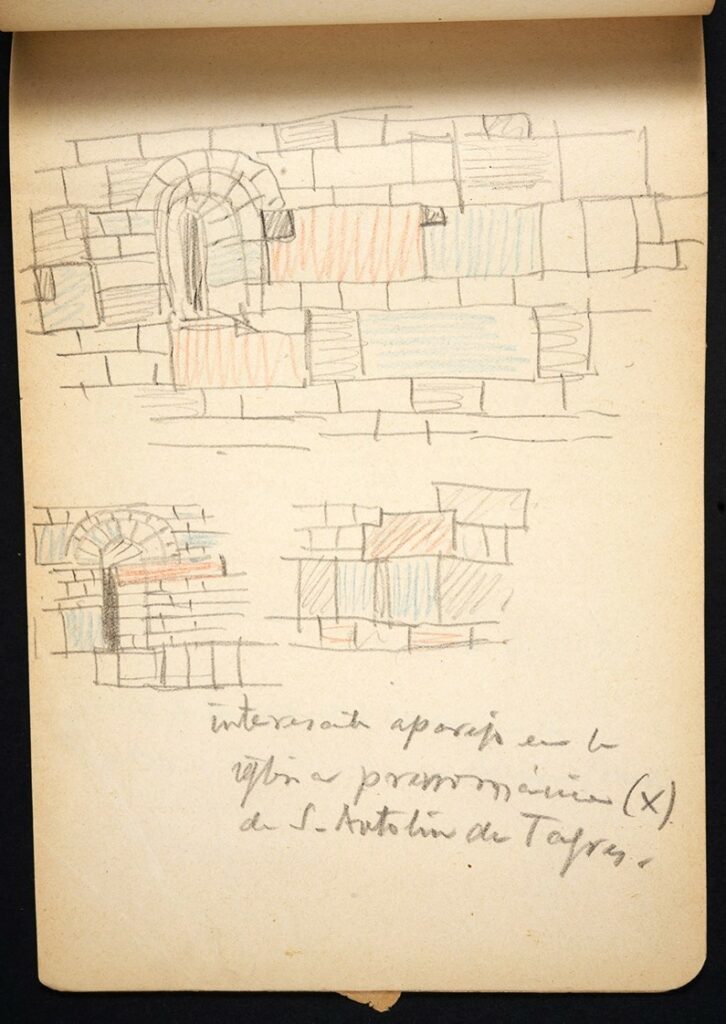 interesante aparejo en la
iglesia prerrománica (X)
de S. Antolín de Toques.